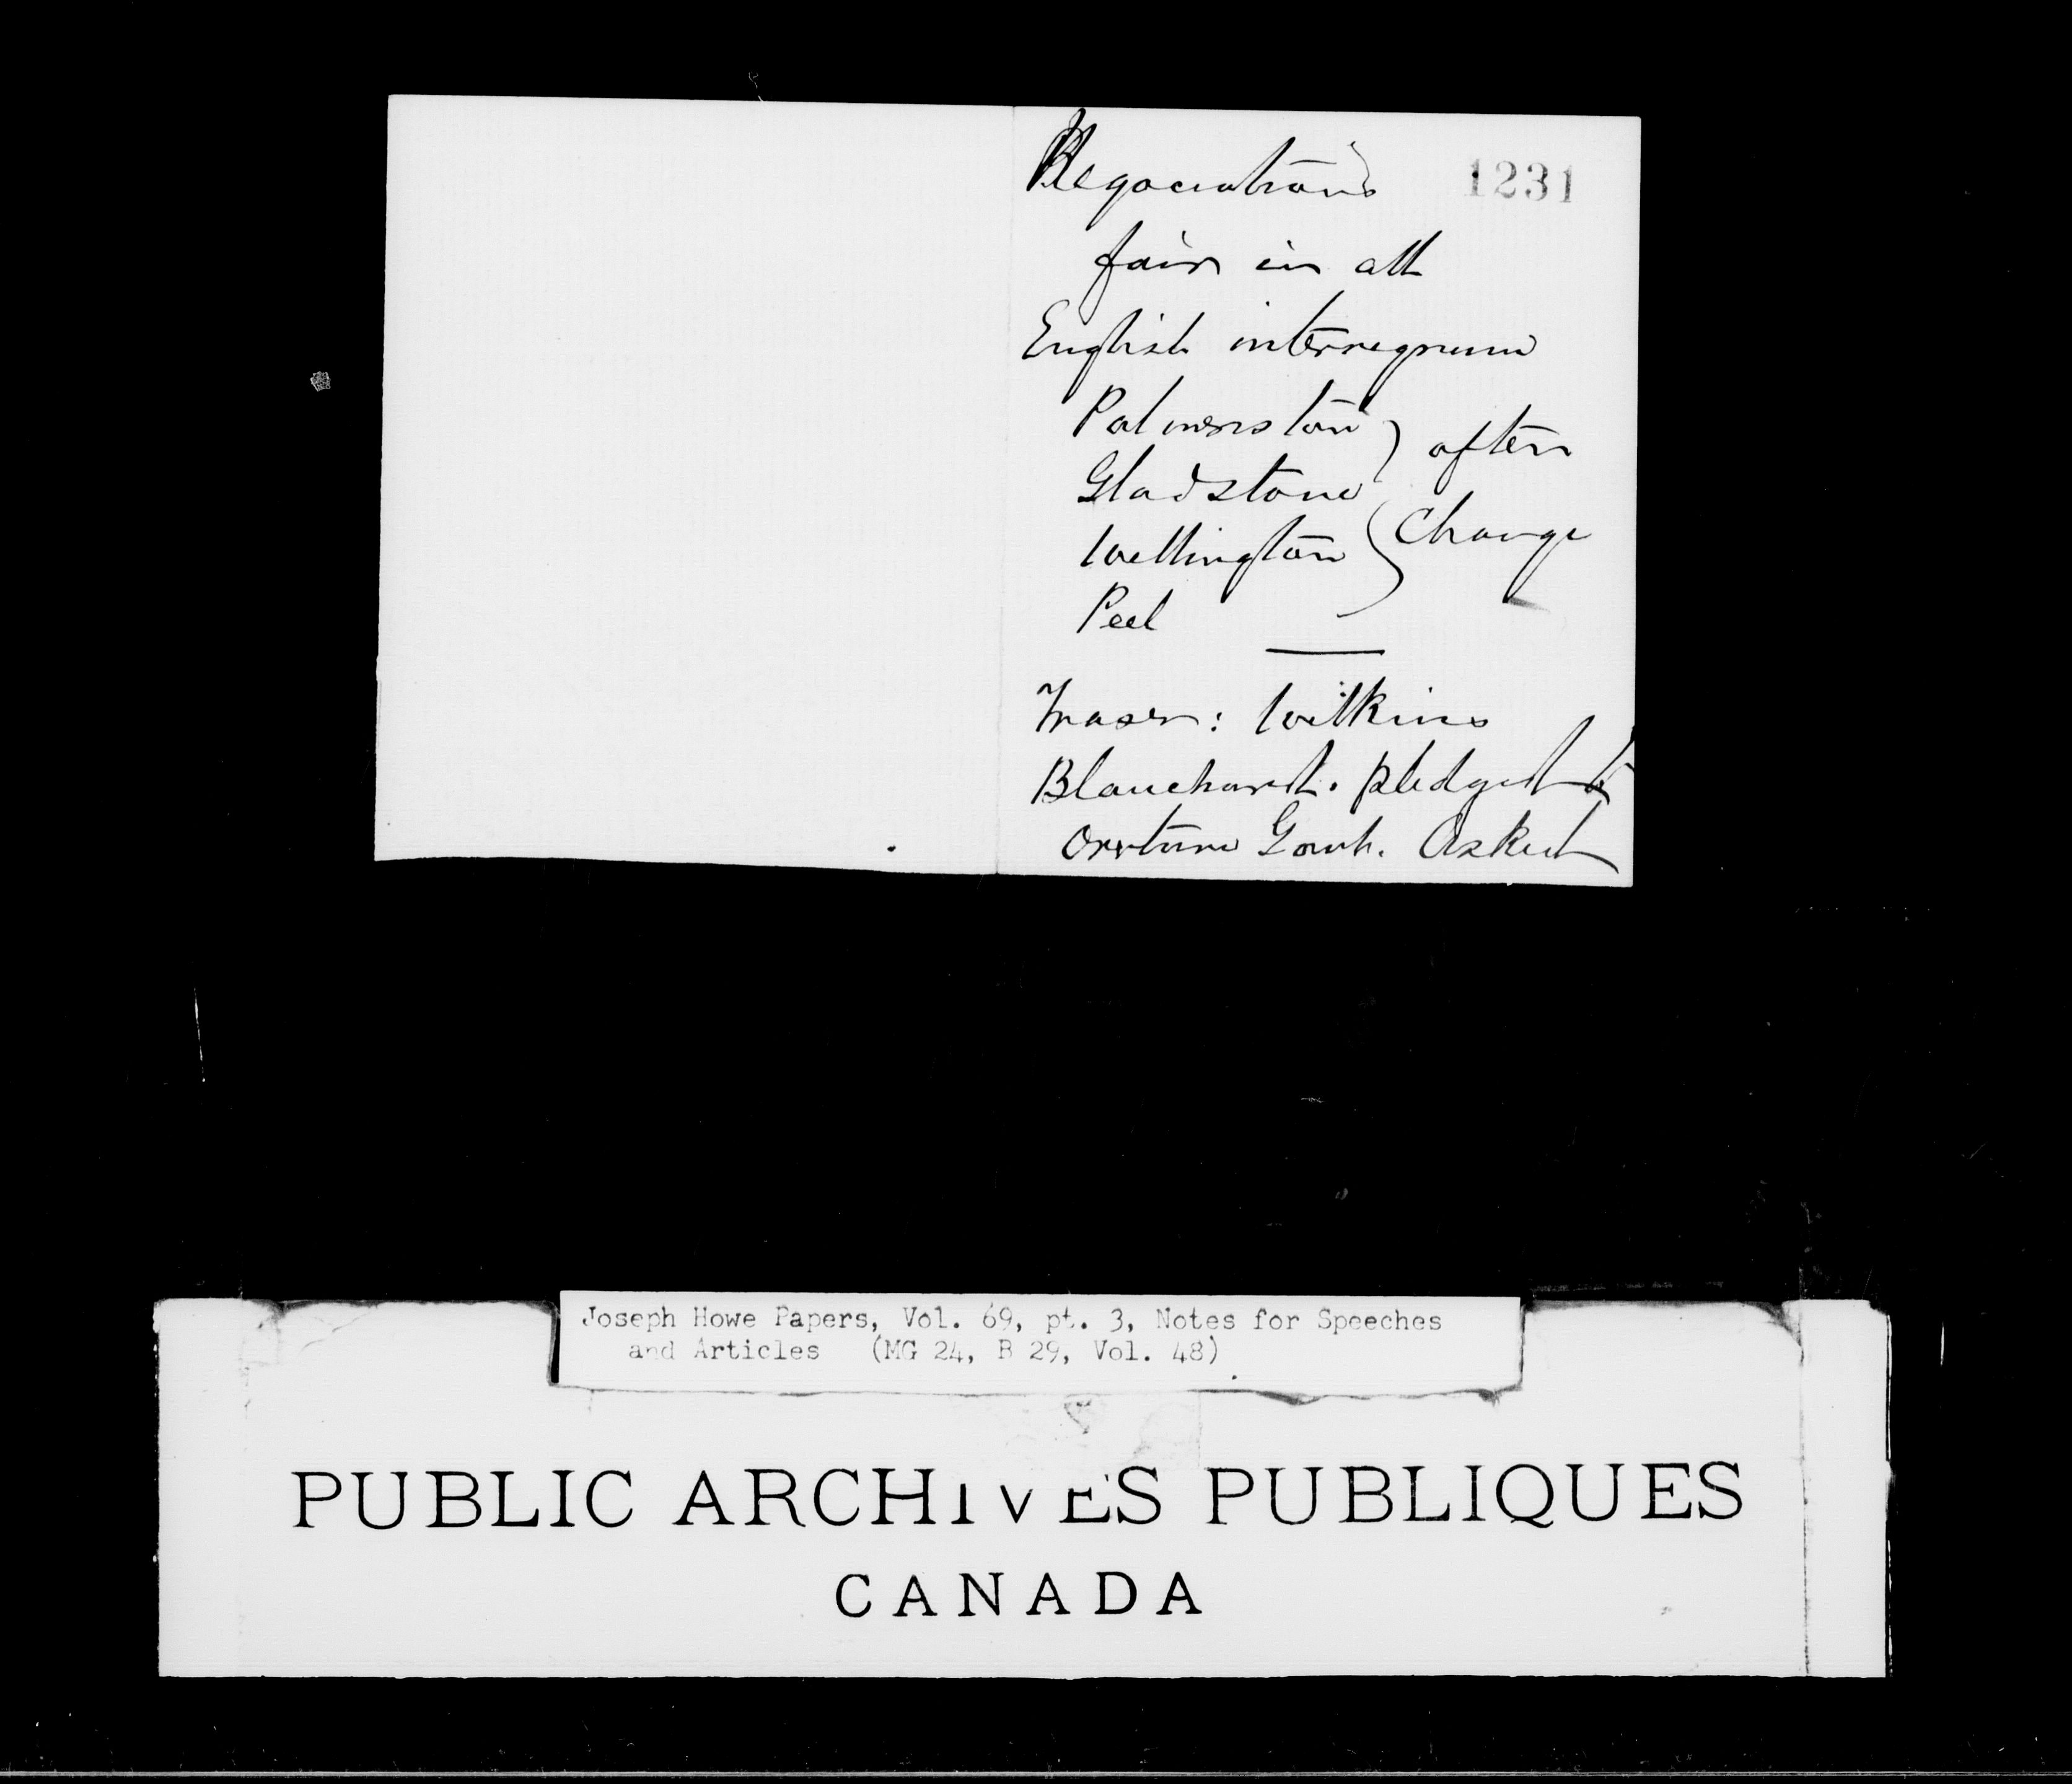 Negociations
1231
fair in all
English interregnum
Palmerston
Gladstone
Wellington
Peel
often
Change
Fraser: Wilkins
Blanchard. pledged to
overturn Govt. Asked
Joseph Howe Papers, Vol. 69, pt. 3, Notes for Speeches
and Articles (MG 24, B 29, Vol. 48)
PUBLIC ARCHIVES PUBLIQUES
CANADA